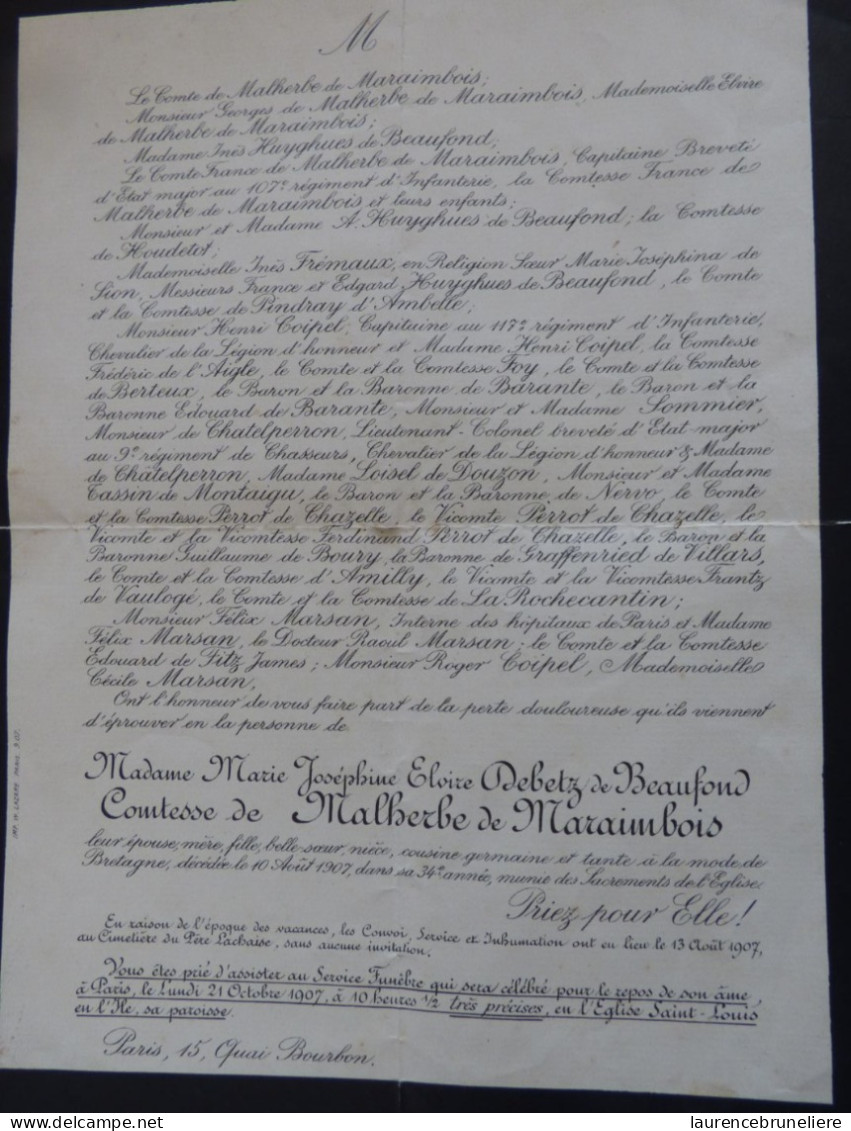 M
Le Comte de Malherbe de Maraimbois;
Monsieur Georges de Malherbe de Maraimbois, Mademoiselle Elvire
de Malherbe de Maraimbois;
Madame Inès Huyghues de Beaufond;
Le Comte France de Malherbe de Maraimbois, Capitaine Breveté
d'Etat major au 107e régiment d'Infanterie, la Comtesse France de
Malherbe de Maraimbois et leurs enfants;
Monsieur et Madame A. Huyghues de Beaufond; la Comtesse
de Houdetot;
Mademoiselle Inès Frémaux, en Religion Sœur Marie Joséphina de
Sion, Messieurs France et Edgard Huyghues de Beaufond, le Comte
et la Comtesse de Pindray d'Ambelle;
Monsieur Henri Coipel, Capitaine au 117e régiment d'Infanterie,
Chevalier de la Légion d'honneur et Madame Henri Coipel, la Comtesse
Frédéric de l'Aigle, le Comte et la Comtesse Foy, le Comte et la Comtesse
de Berteux, le Baron et la Baronne de Barante, le Baron et la
Baronne Edouard de Barante, Monsieur et Madame Sommier,
Monsieur de Chatelperron, Lieutenant-Colonel breveté d'Etat-major
au 9e régiment de Chasseurs, Chevalier de la Légion d'honneur & Madame
de Châtelperron, Madame Loisel de Douzon, Monsieur et Madame
Tassin de Montaigu, le Baron et la Baronne de Nervo, le Comte
et la Comtesse Perrot de Chazelle, le Vicomte Perrot de Chazelle, le
Vicomte et la Vicomtesse Ferdinand Perrot de Chazelle, le Baron et la
Baronne Guillaume de Boury, la Baronne de Graffenried de Villars,
le Comte et la Comtesse d'Amilly, le Vicomte et la Vicomtesse Frantz
de Vaulogé, le Comte et la Comtesse de La Rochecantin;
Monsieur Félix Marsan, Interne des hôpitaux de Paris et Madame
Félix Marsan, le Docteur Raoul Marsan; le Comte et la Comtesse
Edouard de Fitz James; Monsieur Roger Coipel, Mademoiselle
Cécile Marsan,
Ont l'honneur de vous faire part de la perte douloureuse qu'ils viennent
d'éprouver en la personne de
Madame Marie Joséphine Elvire Debetz de Beaufond
Comtesse de Malherbe de Maraimbois
leur épouse, mère, fille, belle-sœur, nièce, cousine germaine et tante à la mode de
Bretagne, décédée le 10 Août 1907, dans sa 34e année, munie des Sacrements de l'Eglise.
Priez pour Elle!
En raison de l'époque des vacances, les Convoi, Service et Inhumation ont eu lieu le 13 Août 1907,
au Cimetière du Père Lachaise, sans aucune invitation.
Vous êtes prié d'assister au Service Funèbre qui sera célébré pour le repos de son âme,
à Paris, le Lundi 21 Octobre 1907, à 10 heures 1/2 très précises, en l'Eglise Saint-Louis
en l'Ile, sa paroisse.
Paris, 15, Quai Bourbon.
laurencebruneliere